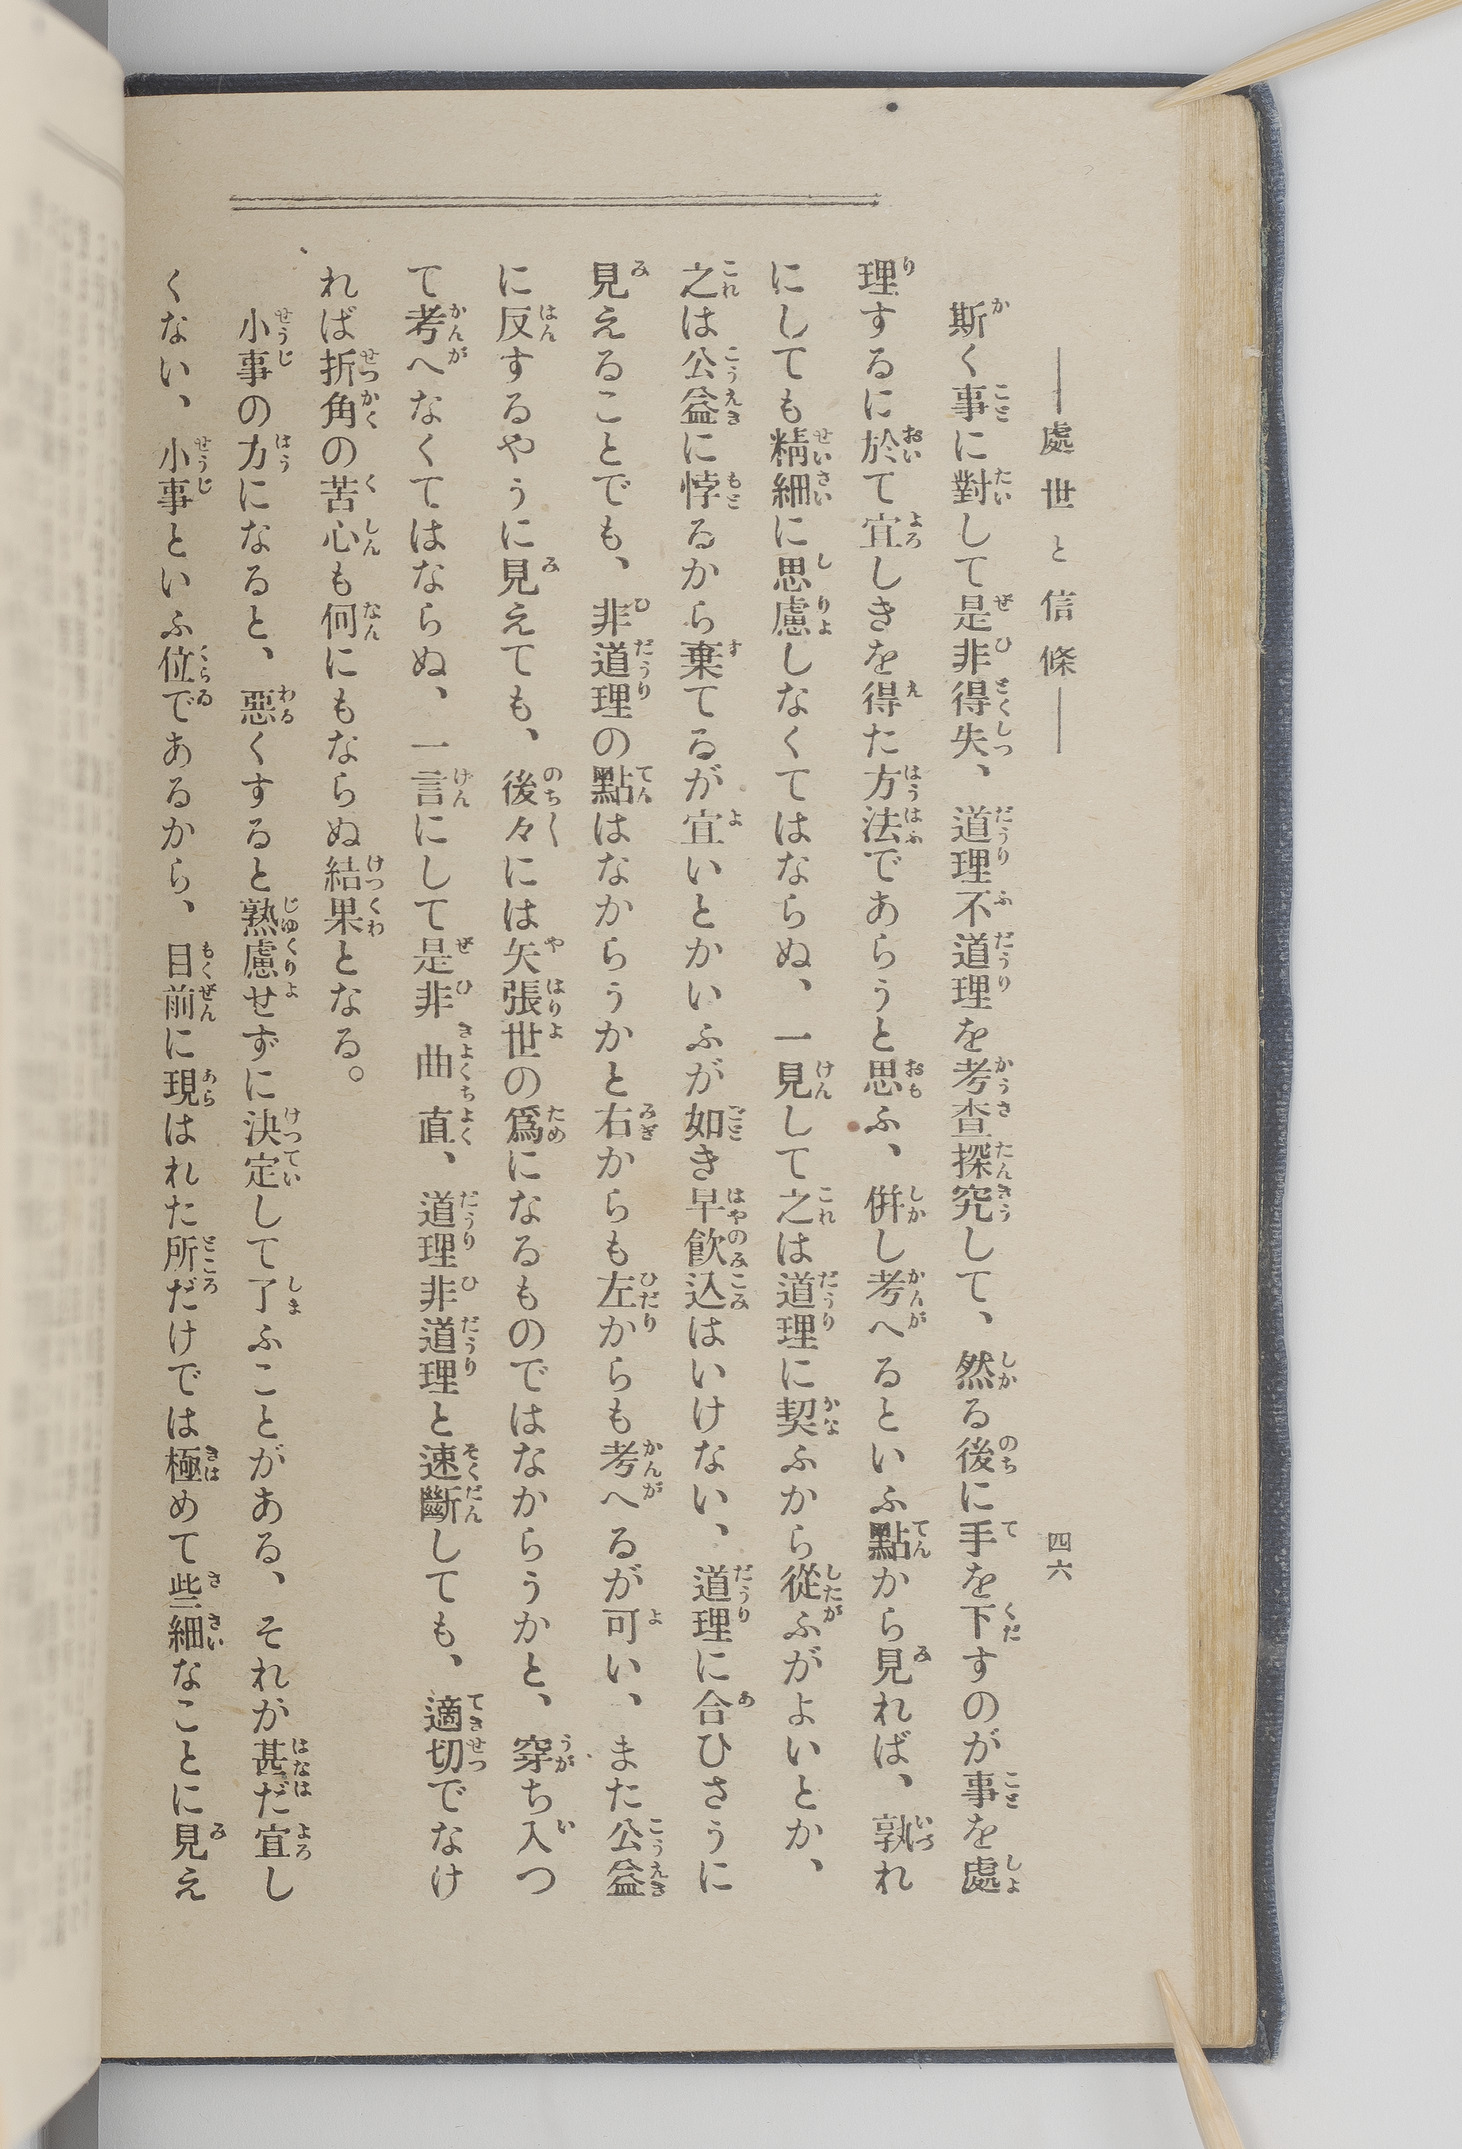 ―處世と信條―
四六
斯く事に對して是非得失、道理不道理を考査探究して、然る後に手を下すのが事を處
理するに於て宜しきを得た方法であらうと思ふ、併し考へるといふ點から見れば、孰れ
にしても精細に思慮しなくてはならぬ、一見して之は道理に契ふから從ふがよいとか、
之は公益に悖るから棄てるが宜いとかいふが如き早飮込はいけない、道理に合ひさうに
見えることでも、非道理の點はなからうかと右からも左からも考へるが可い、また公益
に反するやうに見えても、後々には矢張世の爲になるものではなからうかと、穿ち入つ
て考へなくてはならぬ、一言にして是非曲直、道理非道理と速斷しても、適切でなけ
れば折角の苦心も何にもならぬ結果となる。
小事の方になると、惡くすると熟慮せずに決定して了ふことがある、それが甚だ宜し
くない、小事といふ位であるから、目前に現はれた所だけでは極めて些細なことに見え